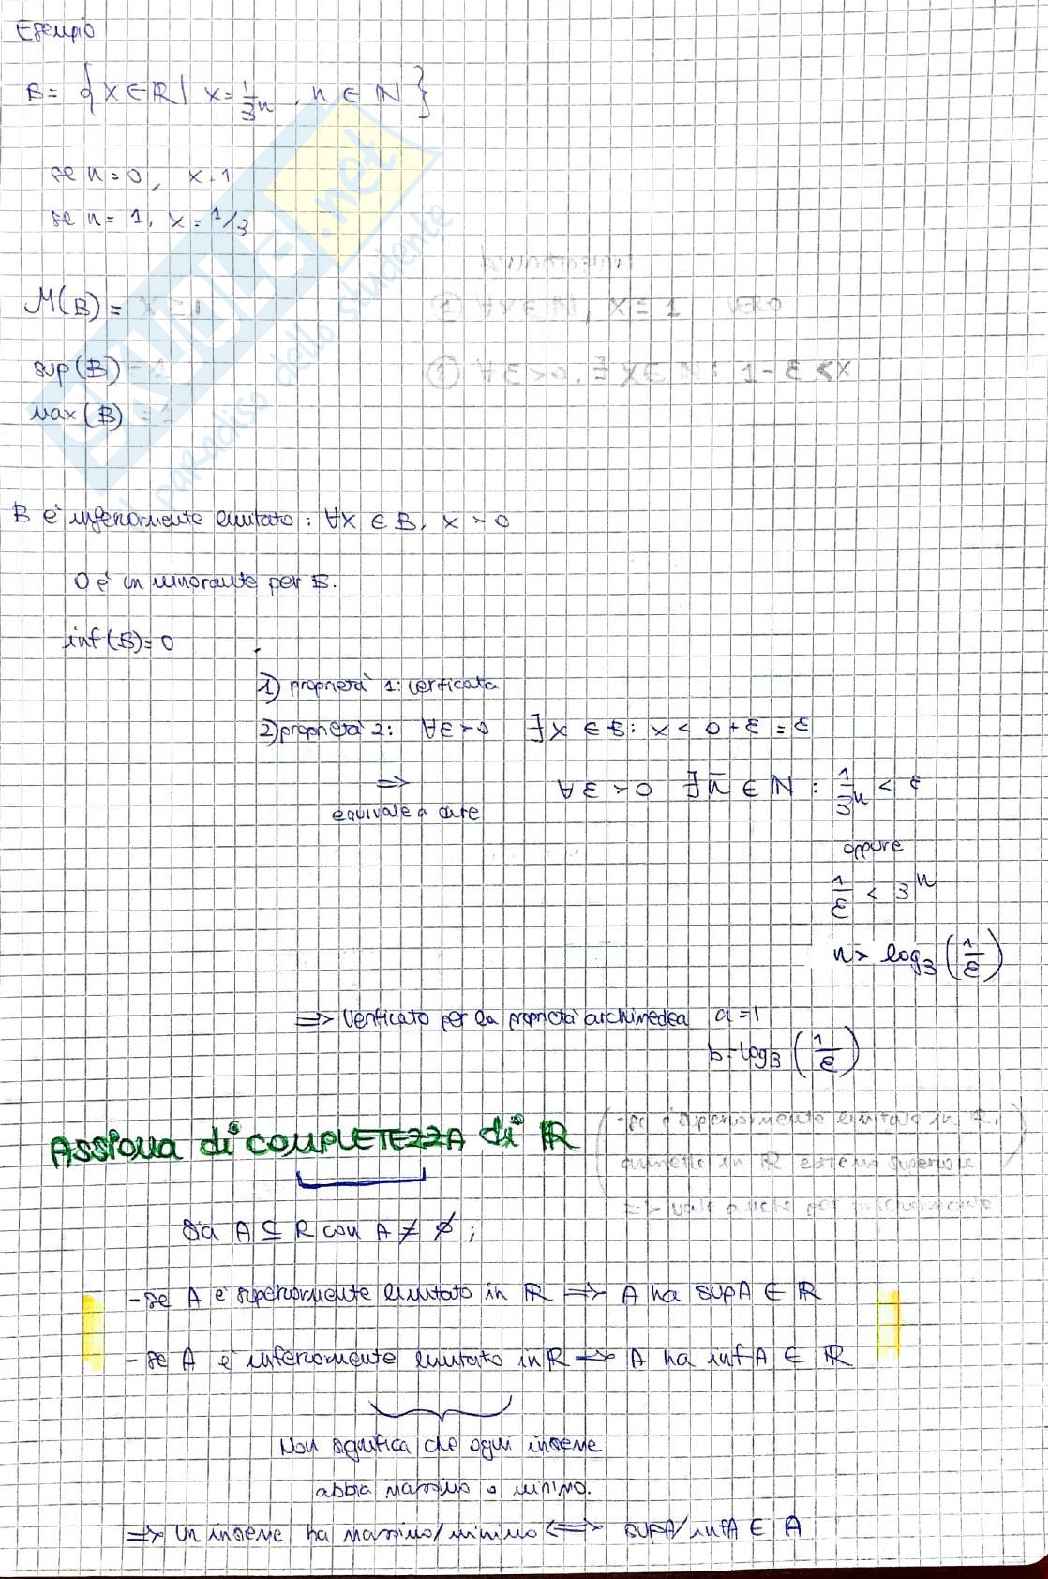 Esempio
B = { x ∈ R | x = 1/3^n , n ∈ N }
se n = 0, x = 1
se n = 1, x = 1/3
M(B) =
sup(B) = 1
Max(B) = 1
① ∀x ∈ , x ≤ 1
① ∀ε>0, ∃ x ∈ : 1 - ε < x
.net
SKUOLA
il paradiso dello studente
B è inferiormente limitato: ∀x ∈ B, x > 0
0 è un minorante per B.
inf(B) = 0
1) proprietà 1: verificata
2) proprietà 2: ∀ε > 0 ∃ x ∈ B: x < 0 + ε = ε
⟹ ∀ε > 0 ∃ n̄ ∈ N : 1/3^n < ε
equivale a dire
oppure
1/ε < 3^n
n > log₃ (1/ε)
⟹ Verificato per la proprietà archimedea a = 1
b = log₃ (1/ε)
ASSIOMA di COMPLETEZZA di R
(-se è superiormente limitato in
ammette in R estremo superiore)
=> vale anche per
Sia A ⊆ R con A ≠ ∅;
- se A è superiormente limitato in R ⟹ A ha supA ∈ R
- se A è inferiormente limitato in R ⟹ A ha infA ∈ R
Non significa che ogni insieme
abbia massimo o minimo.
⟹ Un insieme ha massimo/minimo ⟺ supA/infA ∈ A